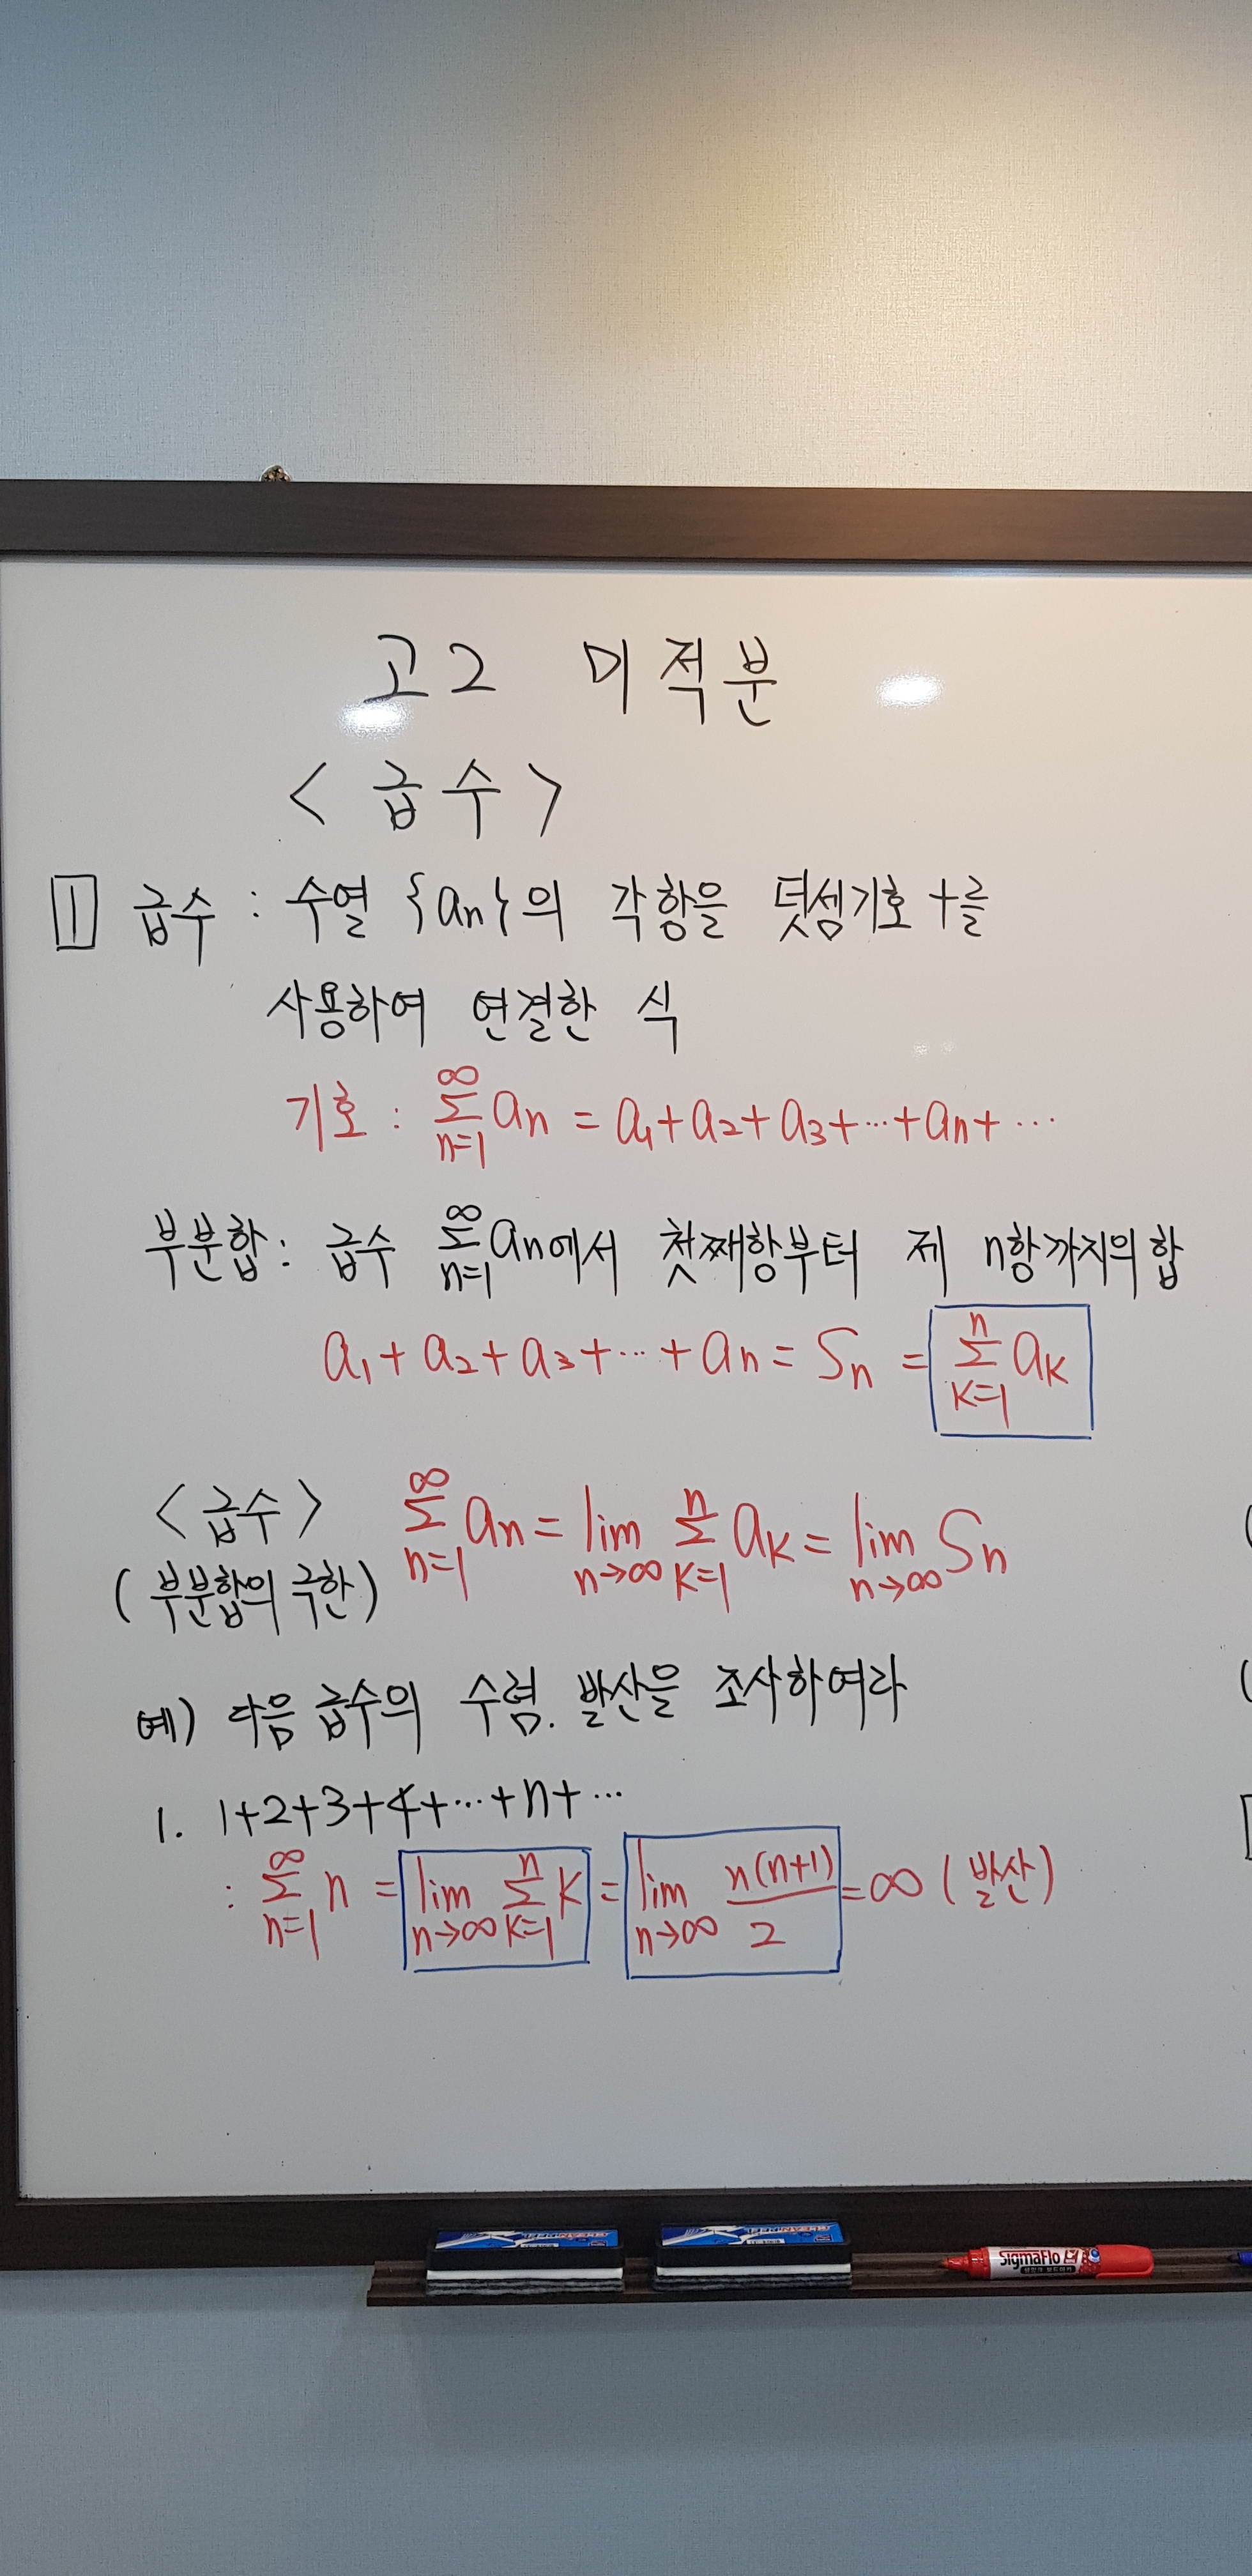 고2 미적분
<급수>
1 급수 : 수열 {an}의 각항을 덧셈기호 +를
사용하여 연결한 식
기호 : ∞Σn=1 an = a1+a2+a3+…+an+…
부분합 : 급수 ∞Σn=1 an에서 첫째항부터 제 n항까지의 합
a1+a2+a3+…+an = Sn = nΣk=1 ak
<급수> ∞Σn=1 an = lim n→∞ nΣk=1 ak = lim n→∞ Sn
(부분합의 극한)
예) 다음 급수의 수렴. 발산을 조사하여라
1. 1+2+3+4+…+n+…
: ∞Σn=1 n = lim n→∞ nΣk=1 k = lim n→∞ n(n+1)/2 = ∞ (발산)
SigmaFlo